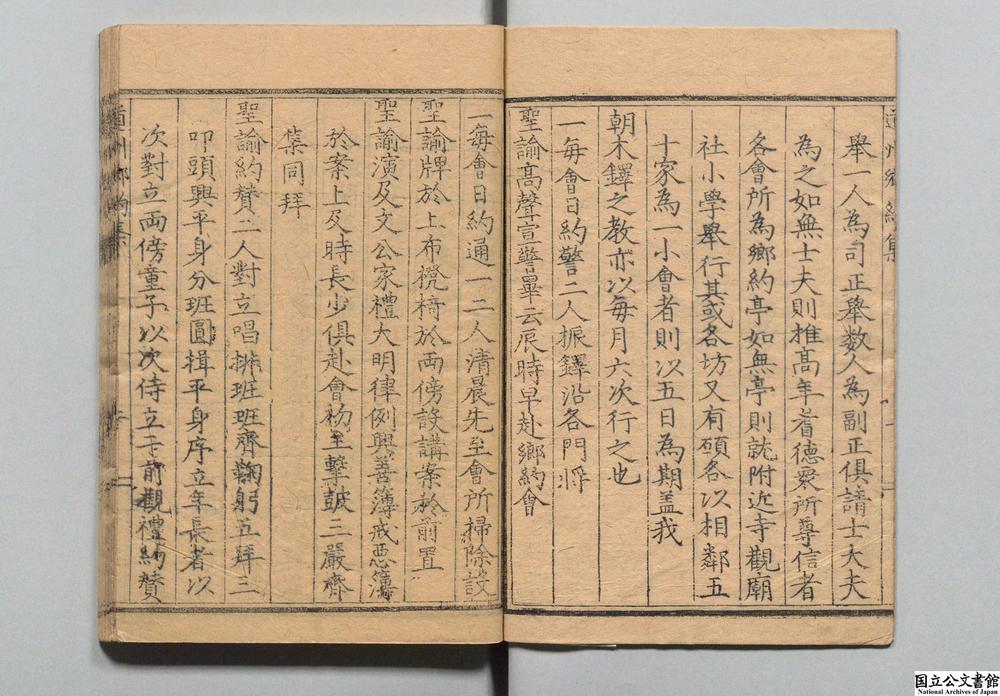 舉一人為司正舉数人為副正俱請士大夫
為之如無士夫則推髙年耆德衆所尊信者
各會所為鄉約亭如無亭則就附近寺觀廟
社小學舉行其或各坊又有願各以相鄰五
十家為一小會者則以五日為期盖我
朝木鐸之教亦以每月六次行之也
一每會日約警二人振鐸沿各門將
聖諭髙聲宣警畢云辰時早赴鄉約會
一每會日約通一二人清晨先至會所掃除設
聖諭牌於上布櫈椅於両傍設講案於前置
聖諭演及文公家禮大明律例興善簿戒惡簿
於案上及時長少俱赴會初至擊鼓三嚴齊
集同拜
聖諭約賛二人對立唱排班班齊鞠躬五拜三
叩頭興平身分班圓揖平身序立年長者以
次對立両傍童子以次侍立于前觀禮約賛
通州鄉約集
国立公文書館
National Archives of Japan